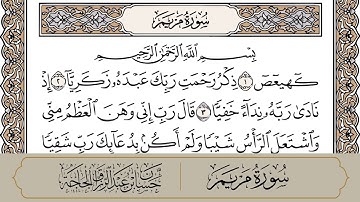 سُورَةُ مَرْيَمَ
بِسْمِ ٱللَّهِ ٱلرَّحْمَٰنِ ٱلرَّحِيمِ
كٓهيعٓصٓ ١ ذِكْرُ رَحْمَتِ رَبِّكَ عَبْدَهُۥ زَكَرِيَّآ ٢ إِذْ
نَادَىٰ رَبَّهُۥ نِدَآءً خَفِيًّا ٣ قَالَ رَبِّ إِنِّى وَهَنَ ٱلْعَظْمُ مِنِّى
وَٱشْتَعَلَ ٱلرَّأْسُ شَيْبًا وَلَمْ أَكُنۢ بِدُعَآئِكَ رَبِّ شَقِيًّا
سُورَةُ مَرْيَمَ